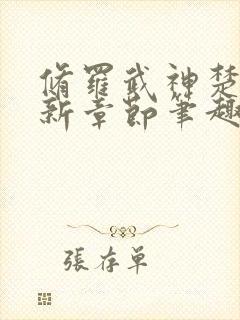 脩羅武神楚
新章節筆趣
張存單